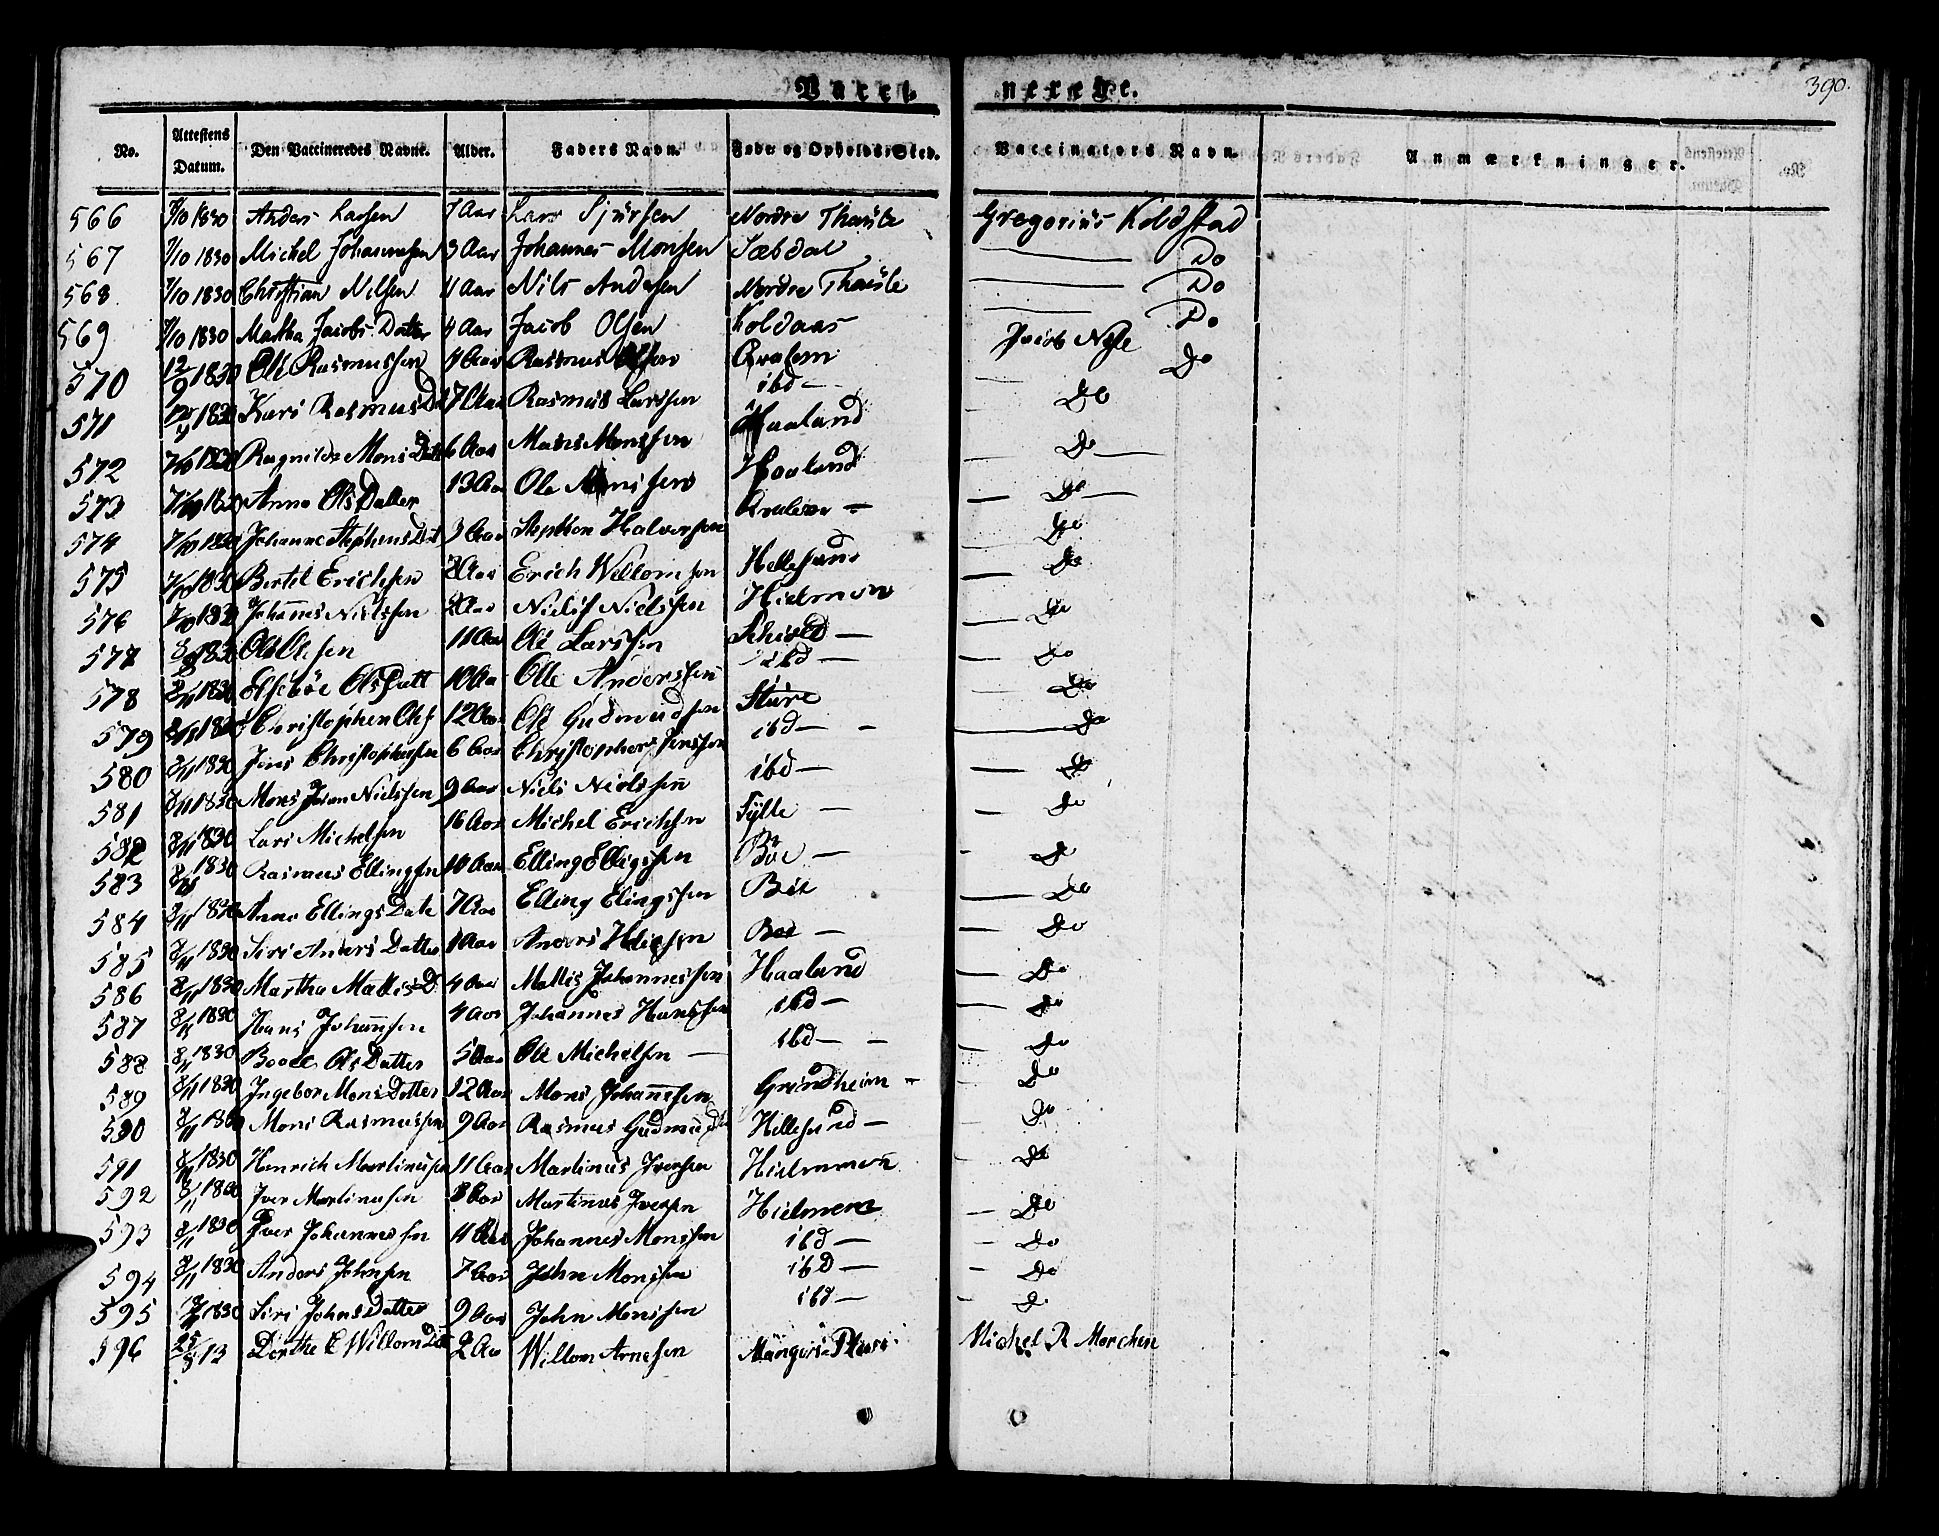 Vacci nerede. 390.
No. Attestens Datum. Den Vaccineredes Navne. Alder. Faders Navn. Føde og Opholds-Sted. Vaccinators Navn. Anmærkninger.
566 7/10 1830 Anders Larsen 7 Aar Lars Sjursen Nordre Thoule Gregorius Koldstad
567 7/10 1830 Michel Johannesen 3 Aar Johannes Monsen Sæbdal — Do
568 7/10 1830 Christian Nilsen 11 Aar Nils Andersen Nordre Thoule — Do
569 7/10 1830 Martha Jacobs Datter 4 Aar Jacob Olsen Koldaas — Do
570 12/9 1830 Ole Rasmussen 4 Aar Rasmus Olsen Qvalem Do
571 1830 Kari Rasmus D 7 Aar Rasmus Larssen ibd — Do
572 7/10 1830 Ragnilde Mons Dat 6 Aar Mons Monssen Haaland — Do —
573 7/10 Anna Ols Datter 13 Aar Ole Monssen Haaland — Do —
574 7/10 1830 Johanne Stephens Dat 3 Aar Stephen Halversen — Do
575 7/10 1830 Bertel Erichsen 2 Aar Erich Willomsen Hellesund — Do
576 1830 Johannes Nielssen 2 Aar Niels Nielssen Hielmen — Do
577 1830 Ole Olssen 11 Aar Ole Larssen — Do
578 8/11 1830 Ols Datt 10 Aar Olle Anderssen ibd — Do
579 8/11 1830 Christophen Ols 12 Aar Ole Gudmudsen Sture — Do
580 8/11 1830 Jens Christophersen 6 Aar Christopher Jenssen ibd — Do
581 8/11 1830 Mons Johan Nielssen 9 Aar Niels Nielssen ibd — Do
582 8/11 1830 Lars Michelsen 16 Aar Michel Erichsen Tylte — Do
583 8/11 1830 Rasmus Ellingsen 10 Aar Elling Elligssen Böe — Do
584 8/11 1830 Anne Ellings Date 7 Aar Elling Elingssen Böe — Do
585 8/11 1830 Siri Anders Datter 1 Aar Anders Böe — Do
586 8/11 1830 Martha Mattis D 4 Aar Mattis Johannessen Haaland — Do
587 8/11 1830 Hans Johanssen 4 Aar Johannes Hanssen ibd — Do
588 8/11 1830 Ols Datter 5 Aar Ole Michelsen — ibd — Do
589 8/11 1830 Ingebor Mons Datter 12 Aar Mons Johanessen Grindheim — Do
590 8/11 Mons Rasmussen 9 Aar Rasmus Gudmu Hillesund — Do
591 8/11 1830 Henrich Martinussen 11 Aar Martinus Iversen Hielmmen — Do
592 8/11 Iver Martinussen 8 Aar Martinus Iversen Hielmen — Do
593 8/11 1830 Iver Johannessen 11 Aar Johannes Monssen ibd — Do
594 8/11 1830 Anders Johnsen 7 Aar John Monssen ibd — Do
595 1830 Siri Johns Datter 9 Aar John Monssen ibd — Do
596 Dorthe C Willom Dat 2 Aar Willom Arnesen Michel R Morchen